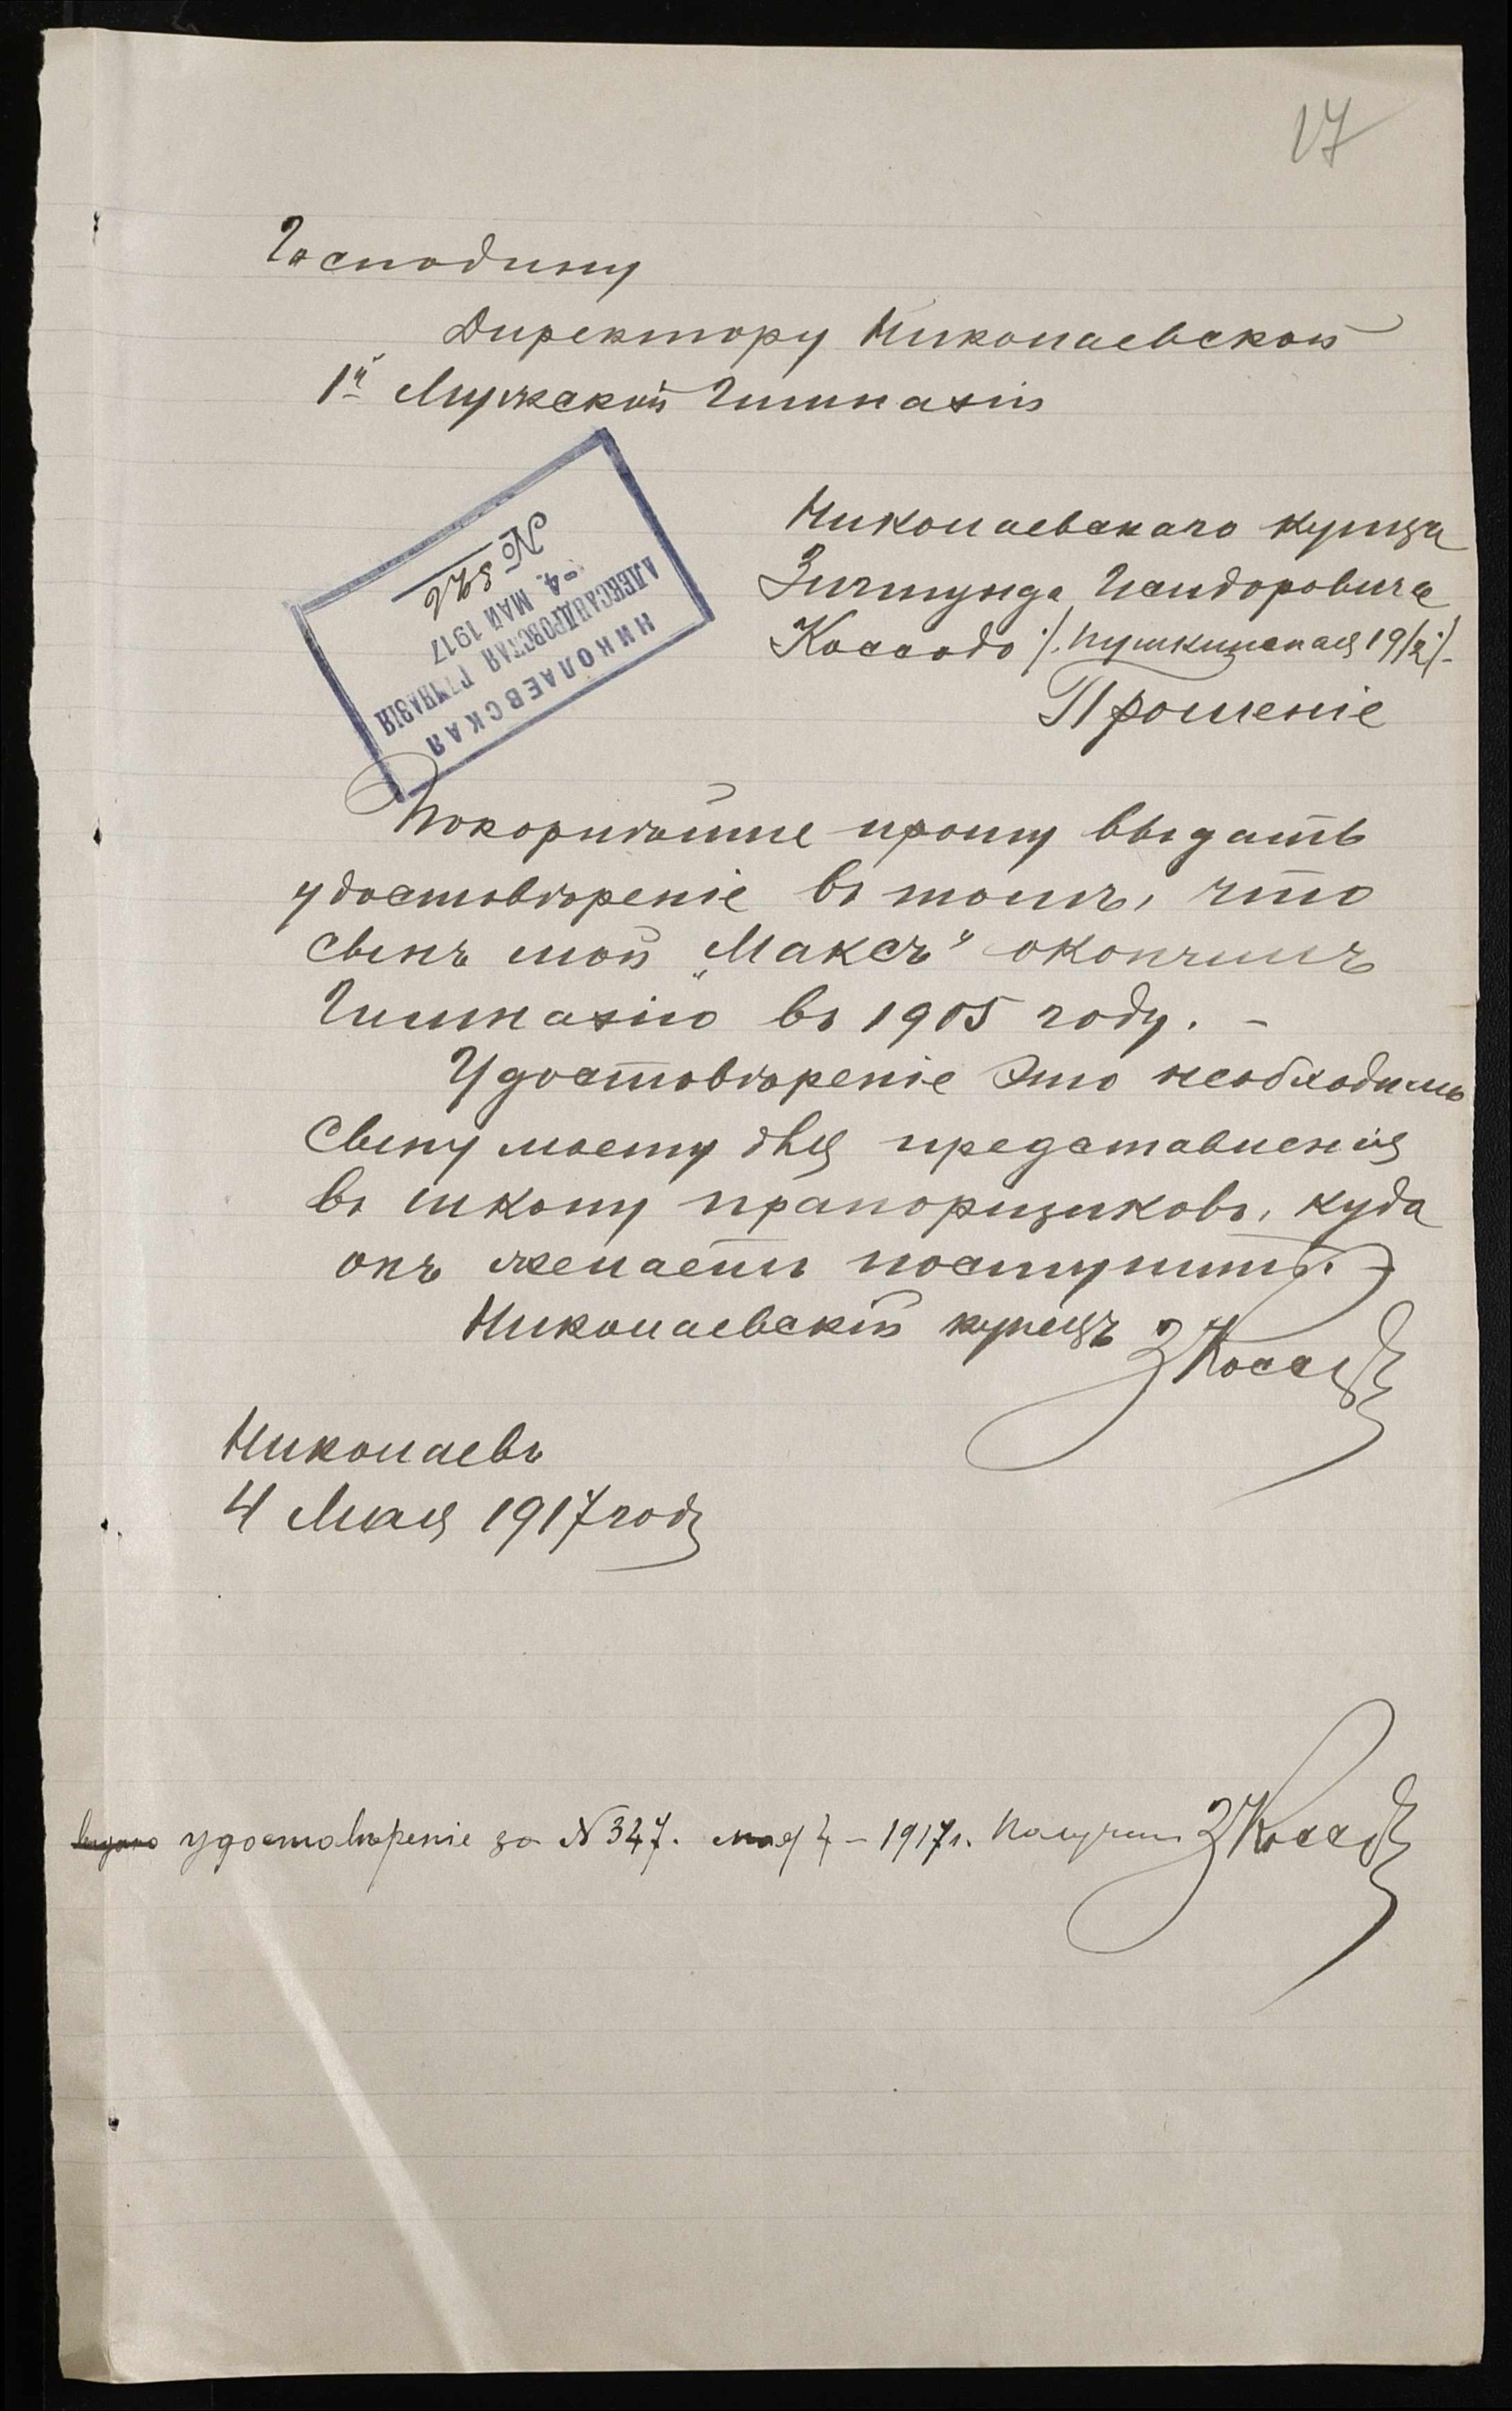 17
Господину
Директору Николаевской
1й Мужской Гимназіи
НИКОЛАЕВСКАЯ
АЛЕКСАНДРОВСКАЯ ГИМНАЗІЯ
-4. МАЙ 1917
№
Николаевскаго купца
Зигмунда Исидоровича
Коссодо /. Пушкинская 19/2 ./.
Прошеніе
Покорнѣйше прошу выдать
удостовѣреніе въ томъ, что
сынъ мой „Максъ" окончилъ
Гимназію въ 1905 году. -
Удостовѣреніе это необходимо
сыну моему для представленія
въ школу прапорщиковъ, куда
онъ желаетъ поступить. -
Николаевскій купецъ ЗКоссодо
Николаевъ
4 Мая 1917 года
удостовѣреніе за №347. мая 4 - 1917 г. Получилъ ЗКоссодо